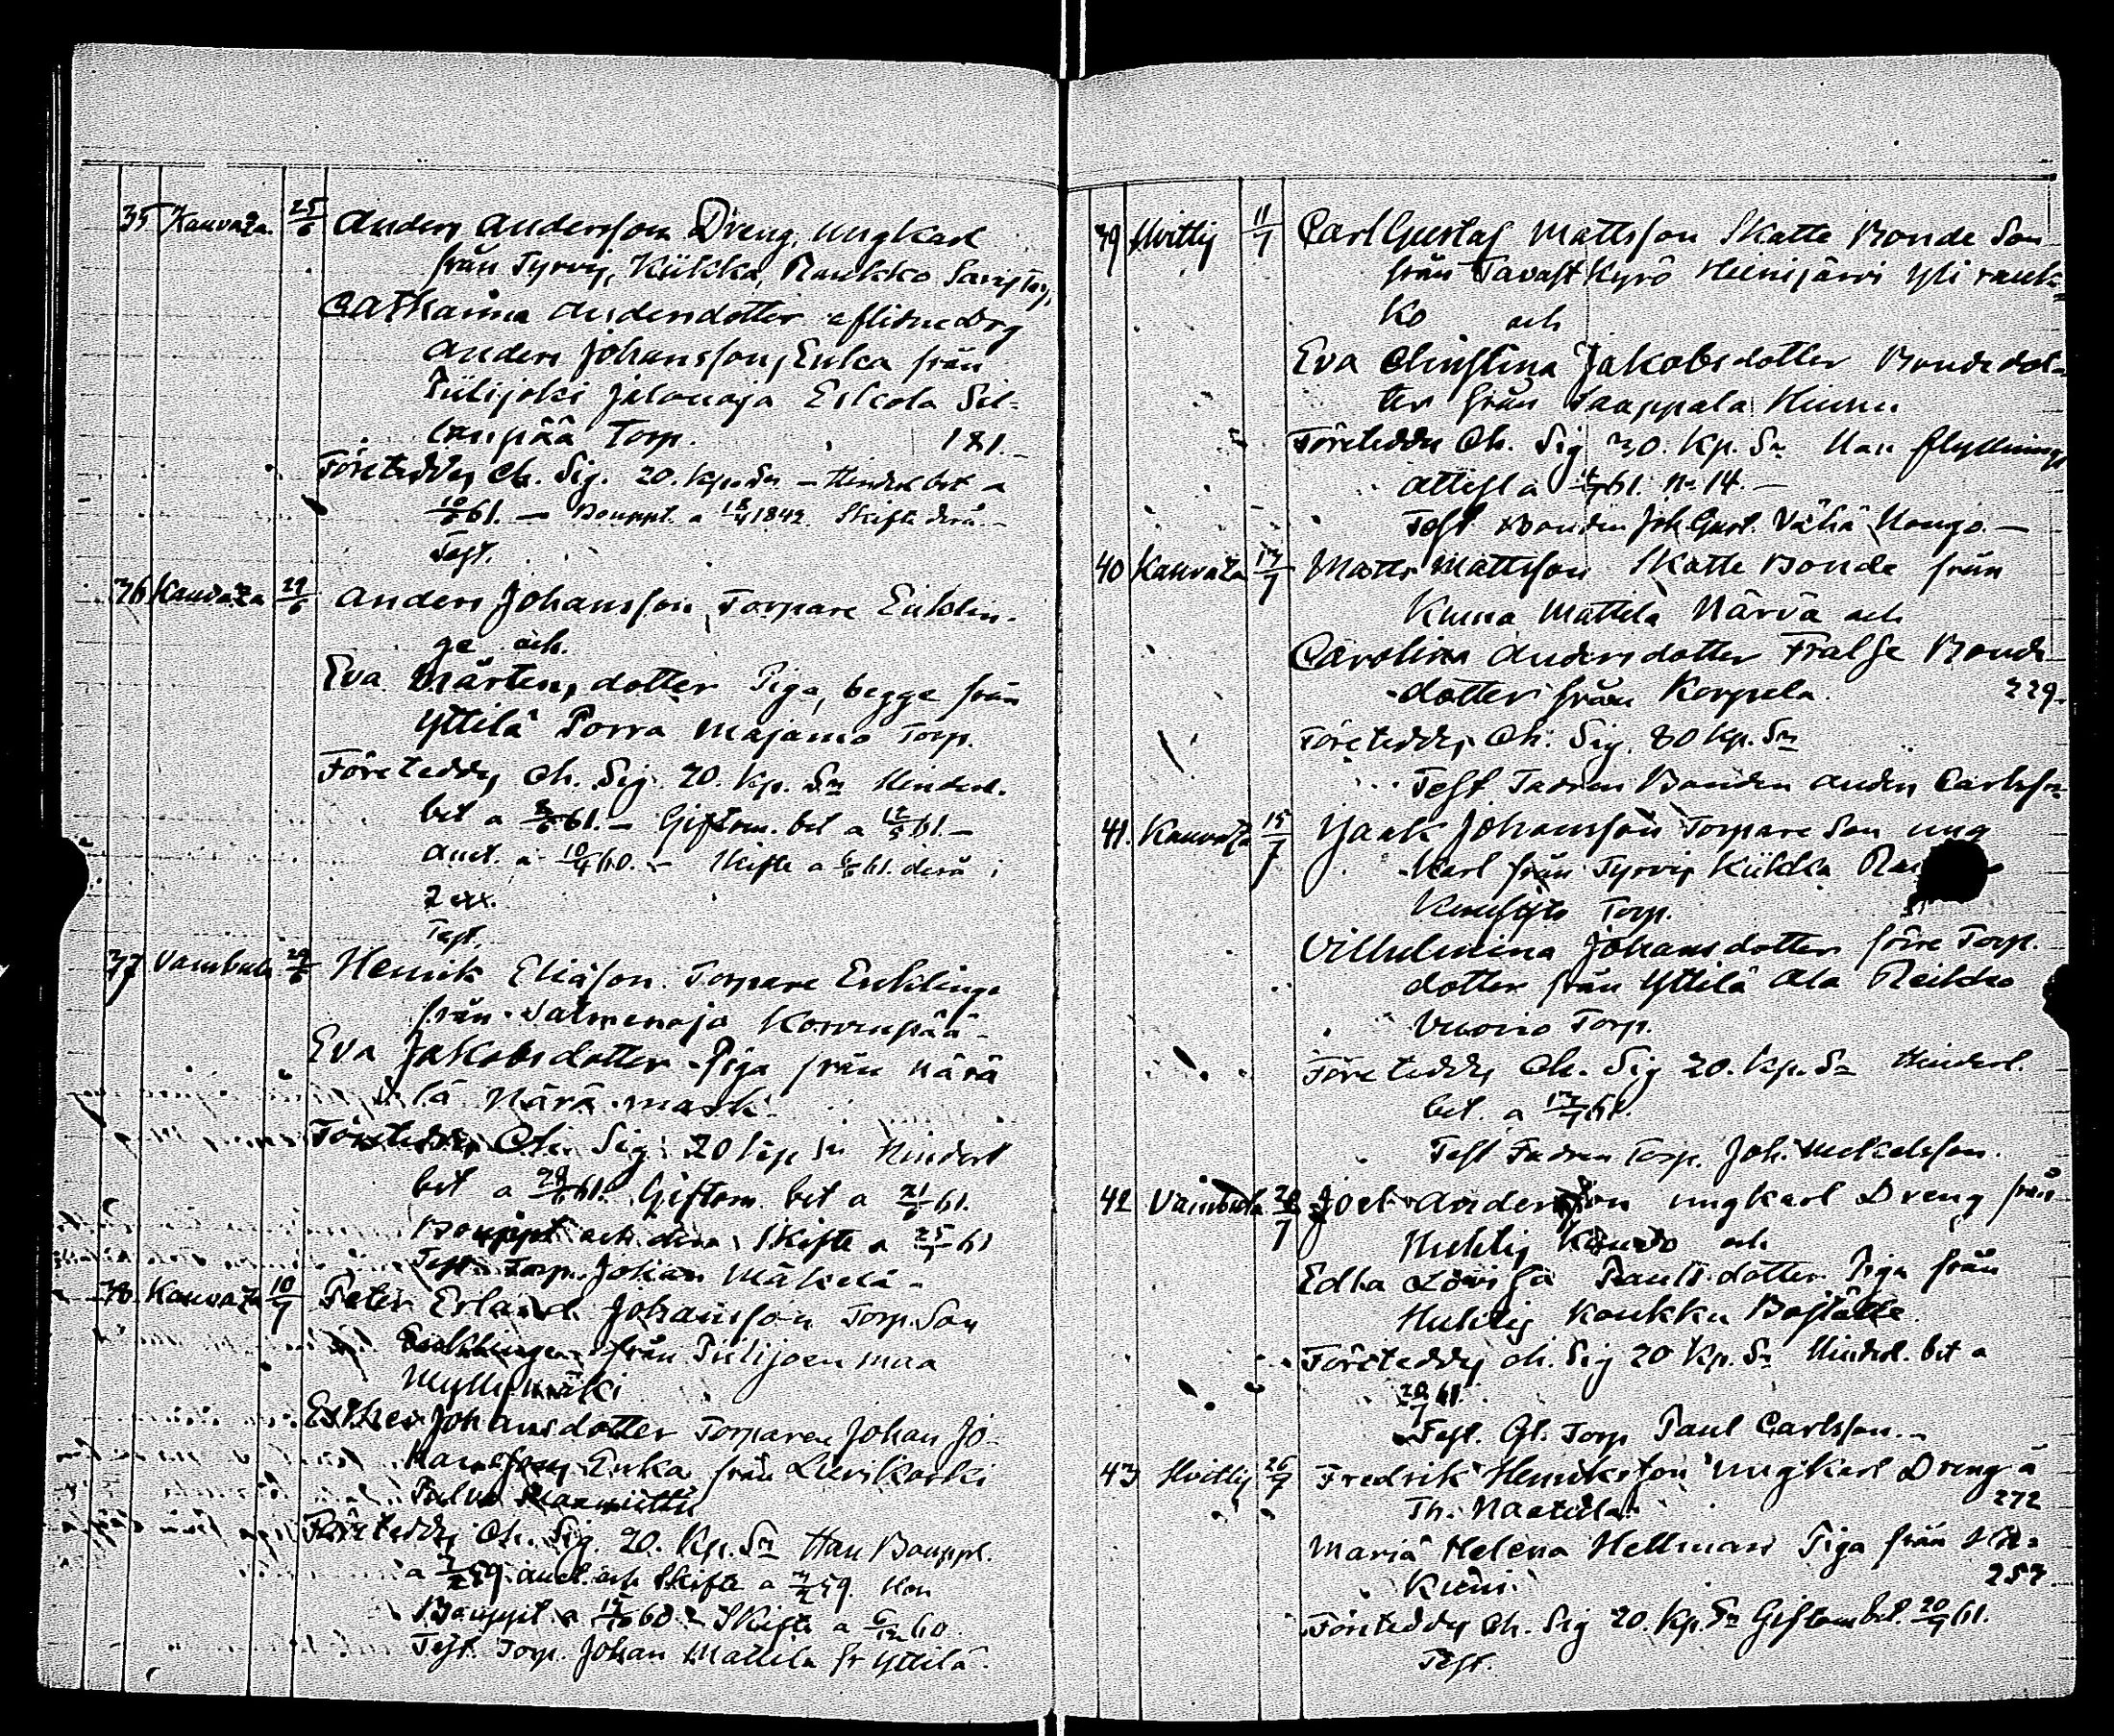 35 Kauvaza. 25/6 Anders Andersson Dreng, ungkarl
från Tyrvis, Kiikka, Raukko
Catharina Andersdotter aflidne Drg
Anders Johanssons Enka från
Piilijoki Jalonoja Eskola Sil-
lanpää Torp. 181.
Företeddes Ch. Sig. 20. Kp. Sm – Hinderl. bet a
10/6 61. – Bouppt. a 18/4 1842. Skifte derå. –
Test.
36 Kauvaza 29/6 Anders Johansson, Torpare Enklin-
ge och
Eva Mårtensdotter Piga, begge från
Yttilä Porra Majamo Torp.
Företeddes Ch. Sig. 20. Kp. Sm Hinderl.
bet a 8/6 61. – Giftom. bet a 12/5 61. –
Auct. a 10/4 60. – Skifte a 6/6 61. derå i
2 ex.
Test.
37 Vambula 29/6 Henrik Eliäson. Torpare Enklinge
från Salmenoja Korvenpää
Eva Jakobsdotter Piga från Närä
lä Närä mask.
Företeddes Ch. Sig. 20 Kp Sm Hinderl
bet a 29/6 61. Giftom. bet a 21/6 61.
Bouppt och derå Skifte a 25/1 61
Test. Torp. Johan Mäkelä –
38. Kauvaza 10/7 Peter Erland Johansson Torp. Son
Enklinge från Piilijoen maa
Myllymäki
Esther Johansdotter Torparen Johan Jo-
hanssons Enka från Livikoski
Företeddes Ch. Sig. 20. Kp. Sm Han Bouppt.
a 7/2 59. auct. och Skifte a 7/2 59. Hon
Bouppt a 60. – Skifte a 6/12 60.
Test. Torp. Johan Mattila fr Yttilä.
39 Hvittis 11/7 Carl Gustaf Mattsson Skatte Bonde Son
från Tavast Kyrö Heinijärvi Yli rauk-
ko och
Eva Christina Jakobsdotter Bondedot-
ter från Saappala Hiunu
Företeddes Ch. Sig 30. Kp. Sm Han flyttnings
attest a 61. No 14. –
Test Bonden Joh Gust. Vähä Hongo. –
40 Kauvaza 13/7 Matts Mattsson Skatte Bonde från
Kuna Mattila Närvä och
Carolina Andersdotter Fralse Bonde
dotter från Korpela. 229.
Företeddes Ch. Sig. 80 Kp. Sm
Test Fadren Bonden Anders Carlsson
41. Kauvaza 15/7 Isaak Johansson Torpare Son ung
karl från Tyrvis Kiikka
Torp.
Vilhelmina Johansdotter förre Torp.
dotter från Yttilä Ala Reikko
Vuorio Torp.
Företeddes Ch. Sig 20. Kp. Sm Hinderl.
bet. a 13/7 61.
Test Fadren Torp. Joh. Mickelsson.
42 Vambula 20/7 Joel Andersson ungkarl Dreng från
Huhtis Kauko och
Edla Lovisa Paulsdotter Piga från
Huhtis Koukku Bostälte
Företeddes Ch. Sig 20 Kp. Sm Hinderl. bet a
20/7 61.
Test. Gl. Torp Paul Carlsson. –
43 Hvittis 26/7 Fredrik Henriksson ungkarl Dreng a
Th. Naatula. 272
Maria Helena Hellman Piga från
257.
Företeddes Ch. Sig 20. Kp. Sm Giftom bet. 20/7 61.
Test.